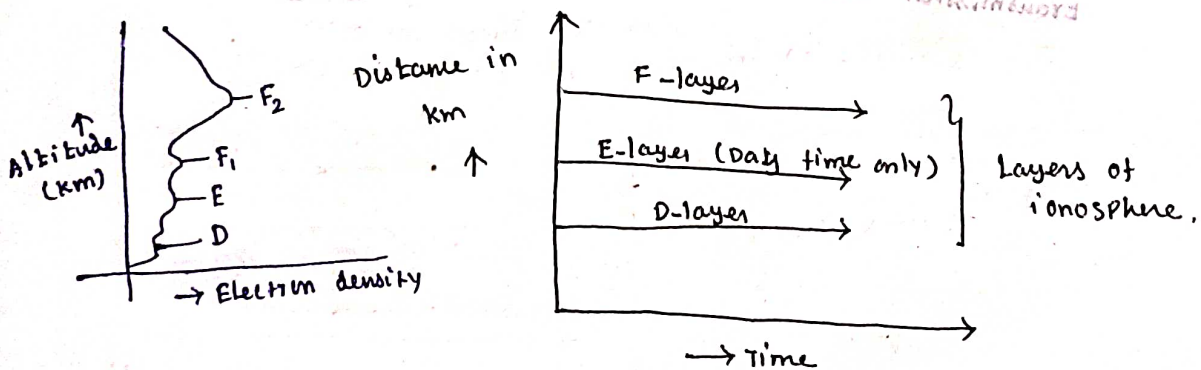 Altitude
(km)
↑
F₂
F₁
E
D
→ Electron density
Distance in
km
↑
F-layers
E-layer (Day time only)
D-layer
→ Time
Layers of
ionosphere.